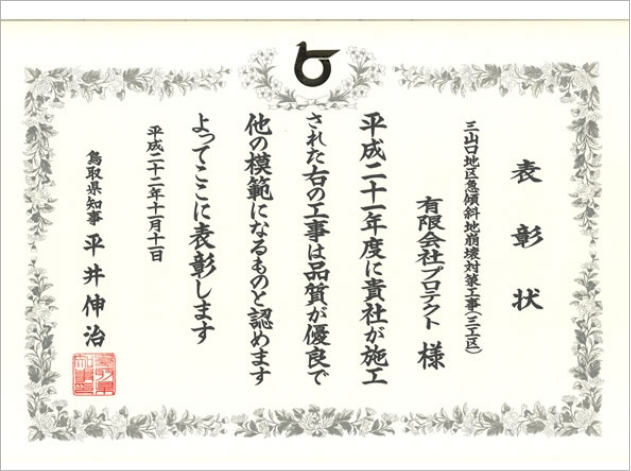 表彰状
三山口地区急傾斜地崩壊対策工事(三工区)
有限会社プロテクト 様
平成二十一年度に貴社が施工
された右の工事は品質が優良で
他の模範になるものと認めます
よってここに表彰します
平成二十二年十月十一日
鳥取県知事 平井伸治